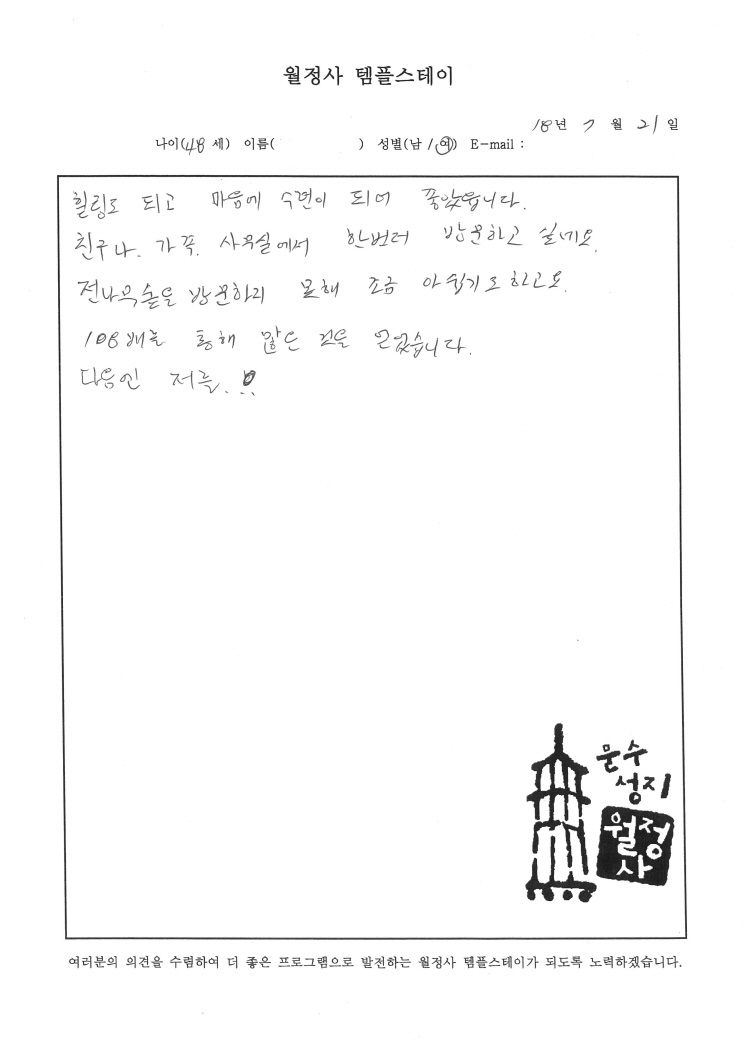 월정사 템플스테이
18년 7 월 21일
나이(48 세) 이름( ) 성별(남 / 여) E-mail :
힐링도 되고 마음에 수련이 되어 좋았습니다.
친구나. 가족. 사무실에서 한번더 방문하고 싶네요.
전나무숲을 방문하지 못해 조금 아쉽기도하고요.
108배를 통해 많은 것을 얻었습니다.
다음엔 저를..!!
문수
성지
월정
사
여러분의 의견을 수렴하여 더 좋은 프로그램으로 발전하는 월정사 템플스테이가 되도록 노력하겠습니다.